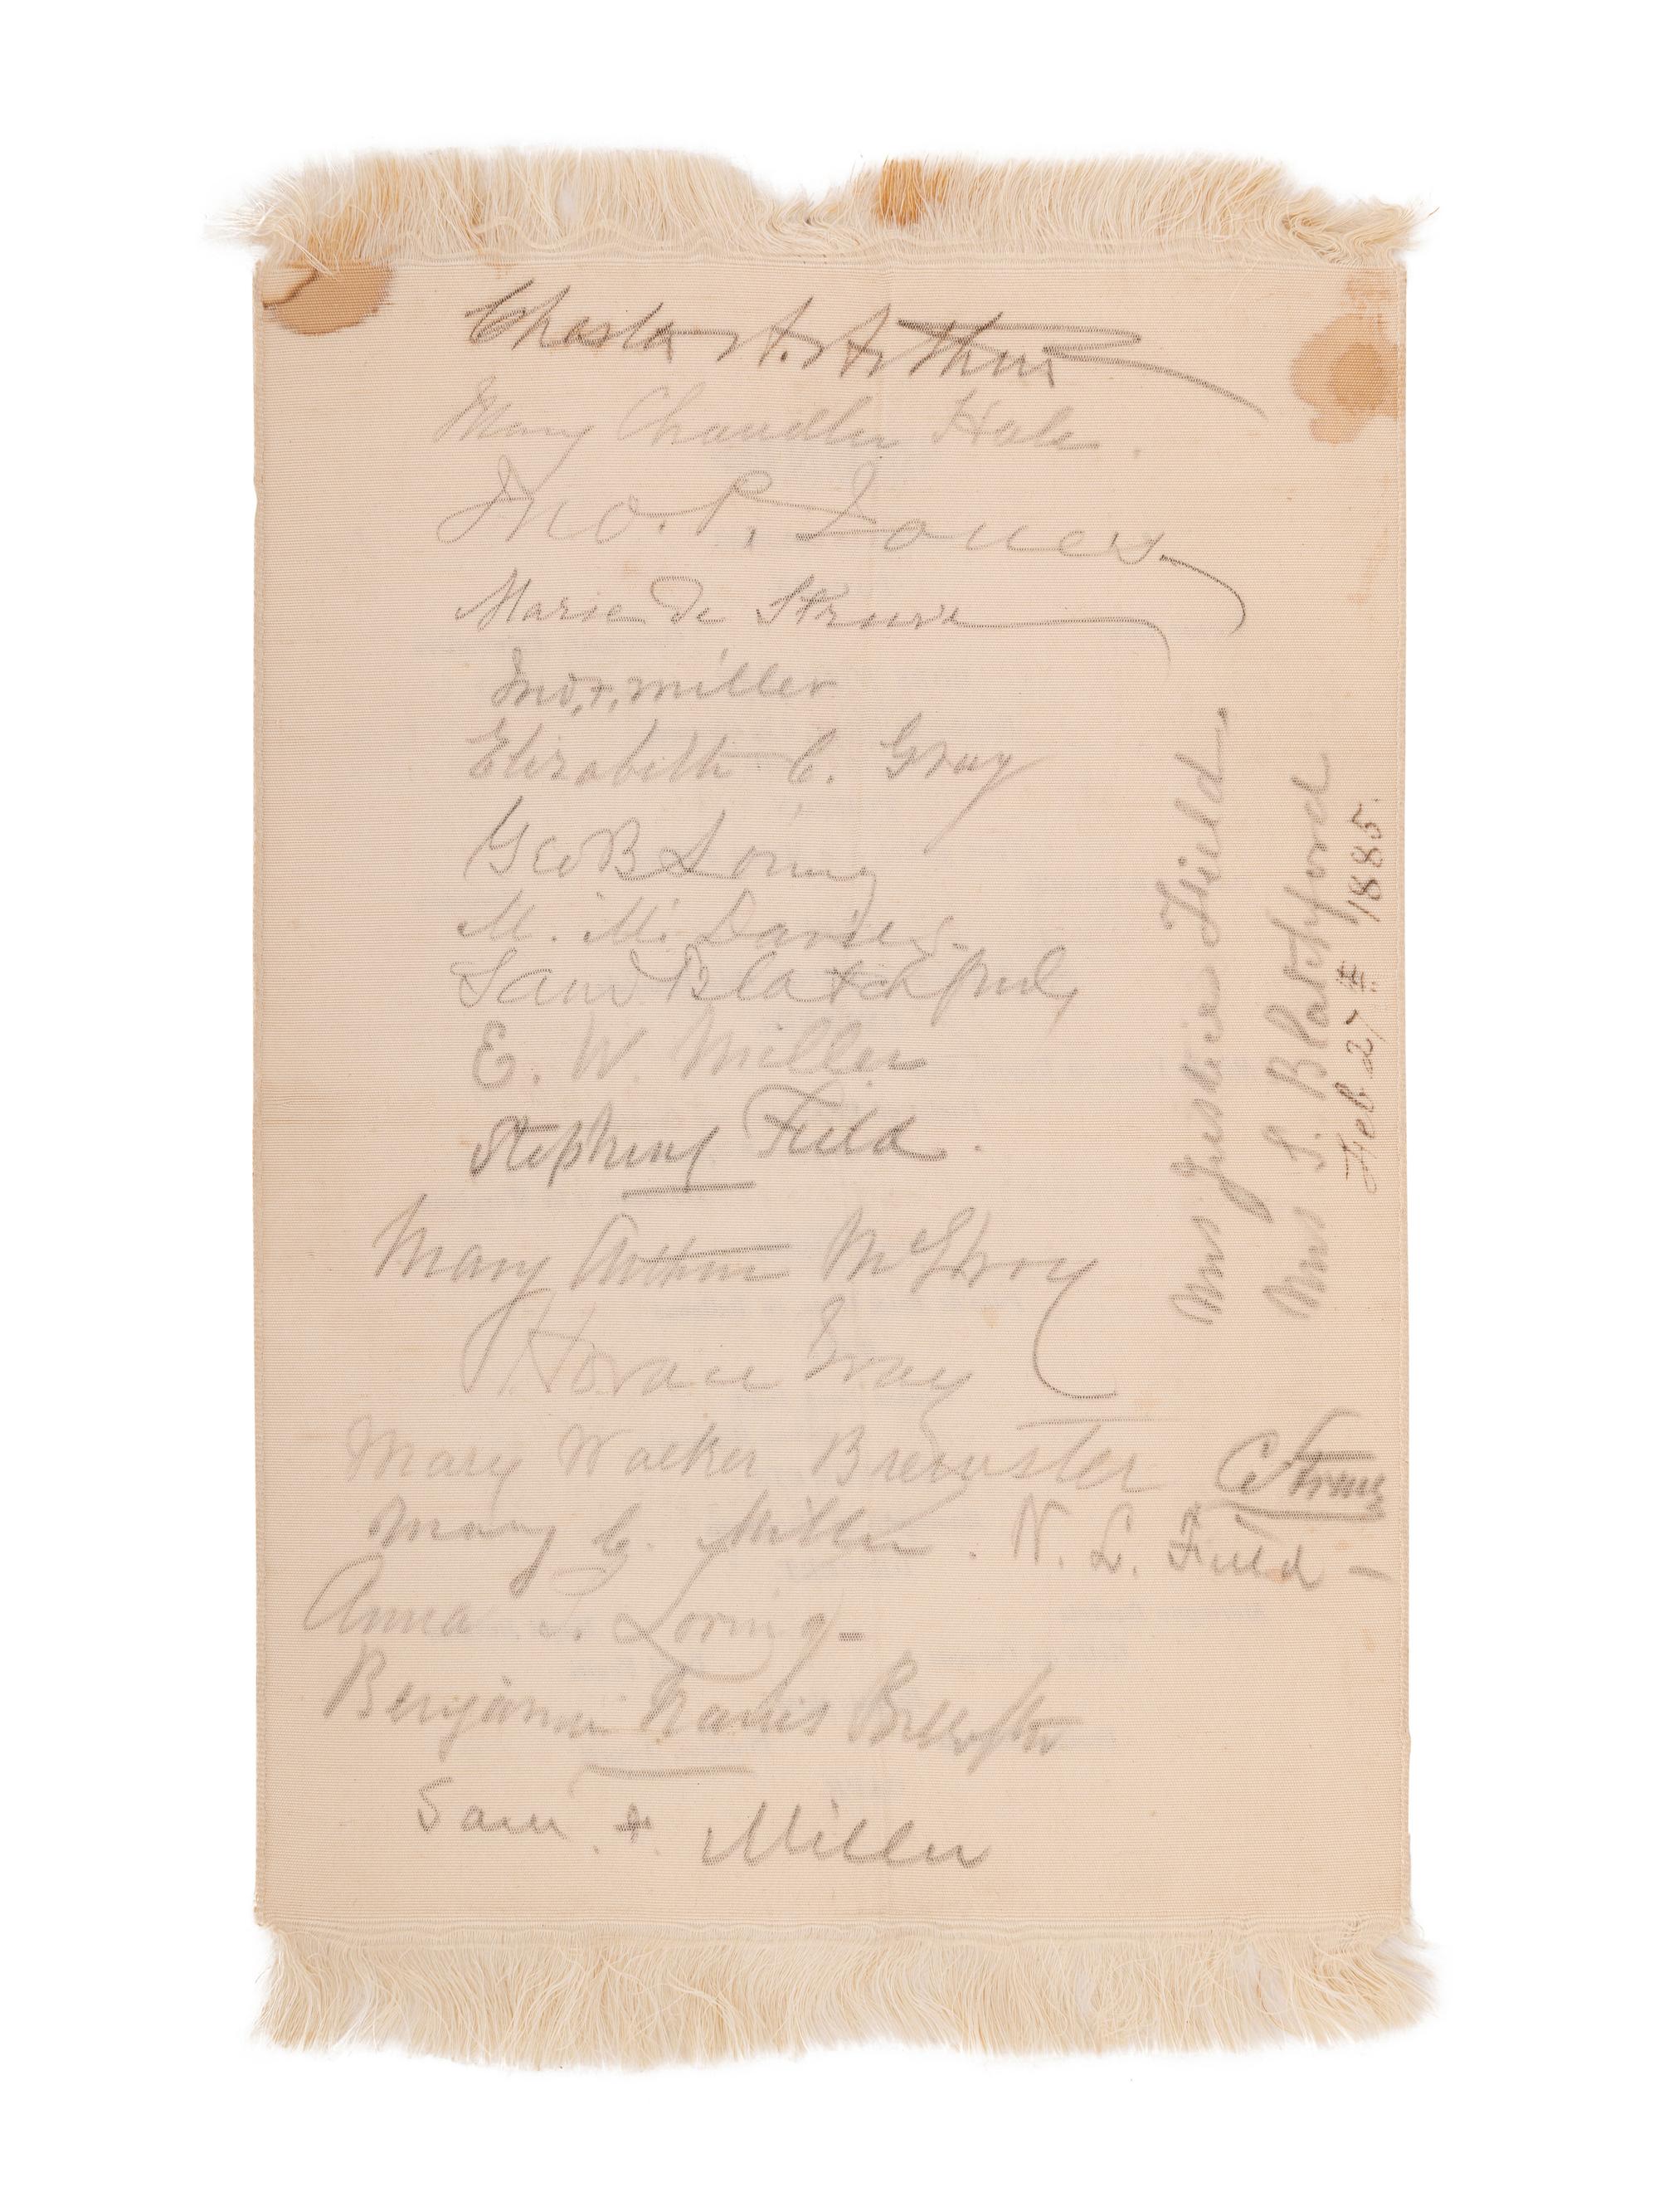 Chester A. Arthur
Mary Chandler Hale.
Jno. P. Jones
Marie de Struve
Jno. F. Miller
Elizabeth C. Gray
Geo B Loring
M. M. Davies
Sam Blatchford
E. W. Miller
Stephen J Field.
Mary Arthur McElroy
Horace Gray
Mary Walker Brewster
C Struve
Mary E. Miller.
N. L. Field
Anna S. Loring
Benjamin Harris Brewster
Sam. F Miller
Mrs Justice Field
Mrs S. Blatchford
Feb 27th 1885.